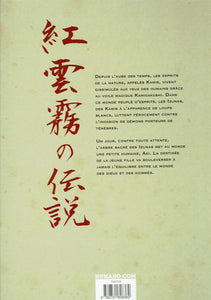 紅雲霧の伝説
Depuis l'aube des temps, les esprits
de la nature, appelés Kamis, vivent
dissimulés aux yeux des humains grâce
au voile magique Kamigakushi. Dans
ce monde peuplé d'esprits, les Izunas,
des Kamis à l'apparence de loups
blancs, luttent férocement contre
l'invasion de démons porteurs de
ténèbres.
Un jour, contre toute attente,
l'arbre sacré des Izunas met au monde
une petite humaine, Aki. La destinée
de la jeune fille va bouleverser à
jamais l'équilibre entre le monde
des dieux et des hommes.
HUMANO.COM